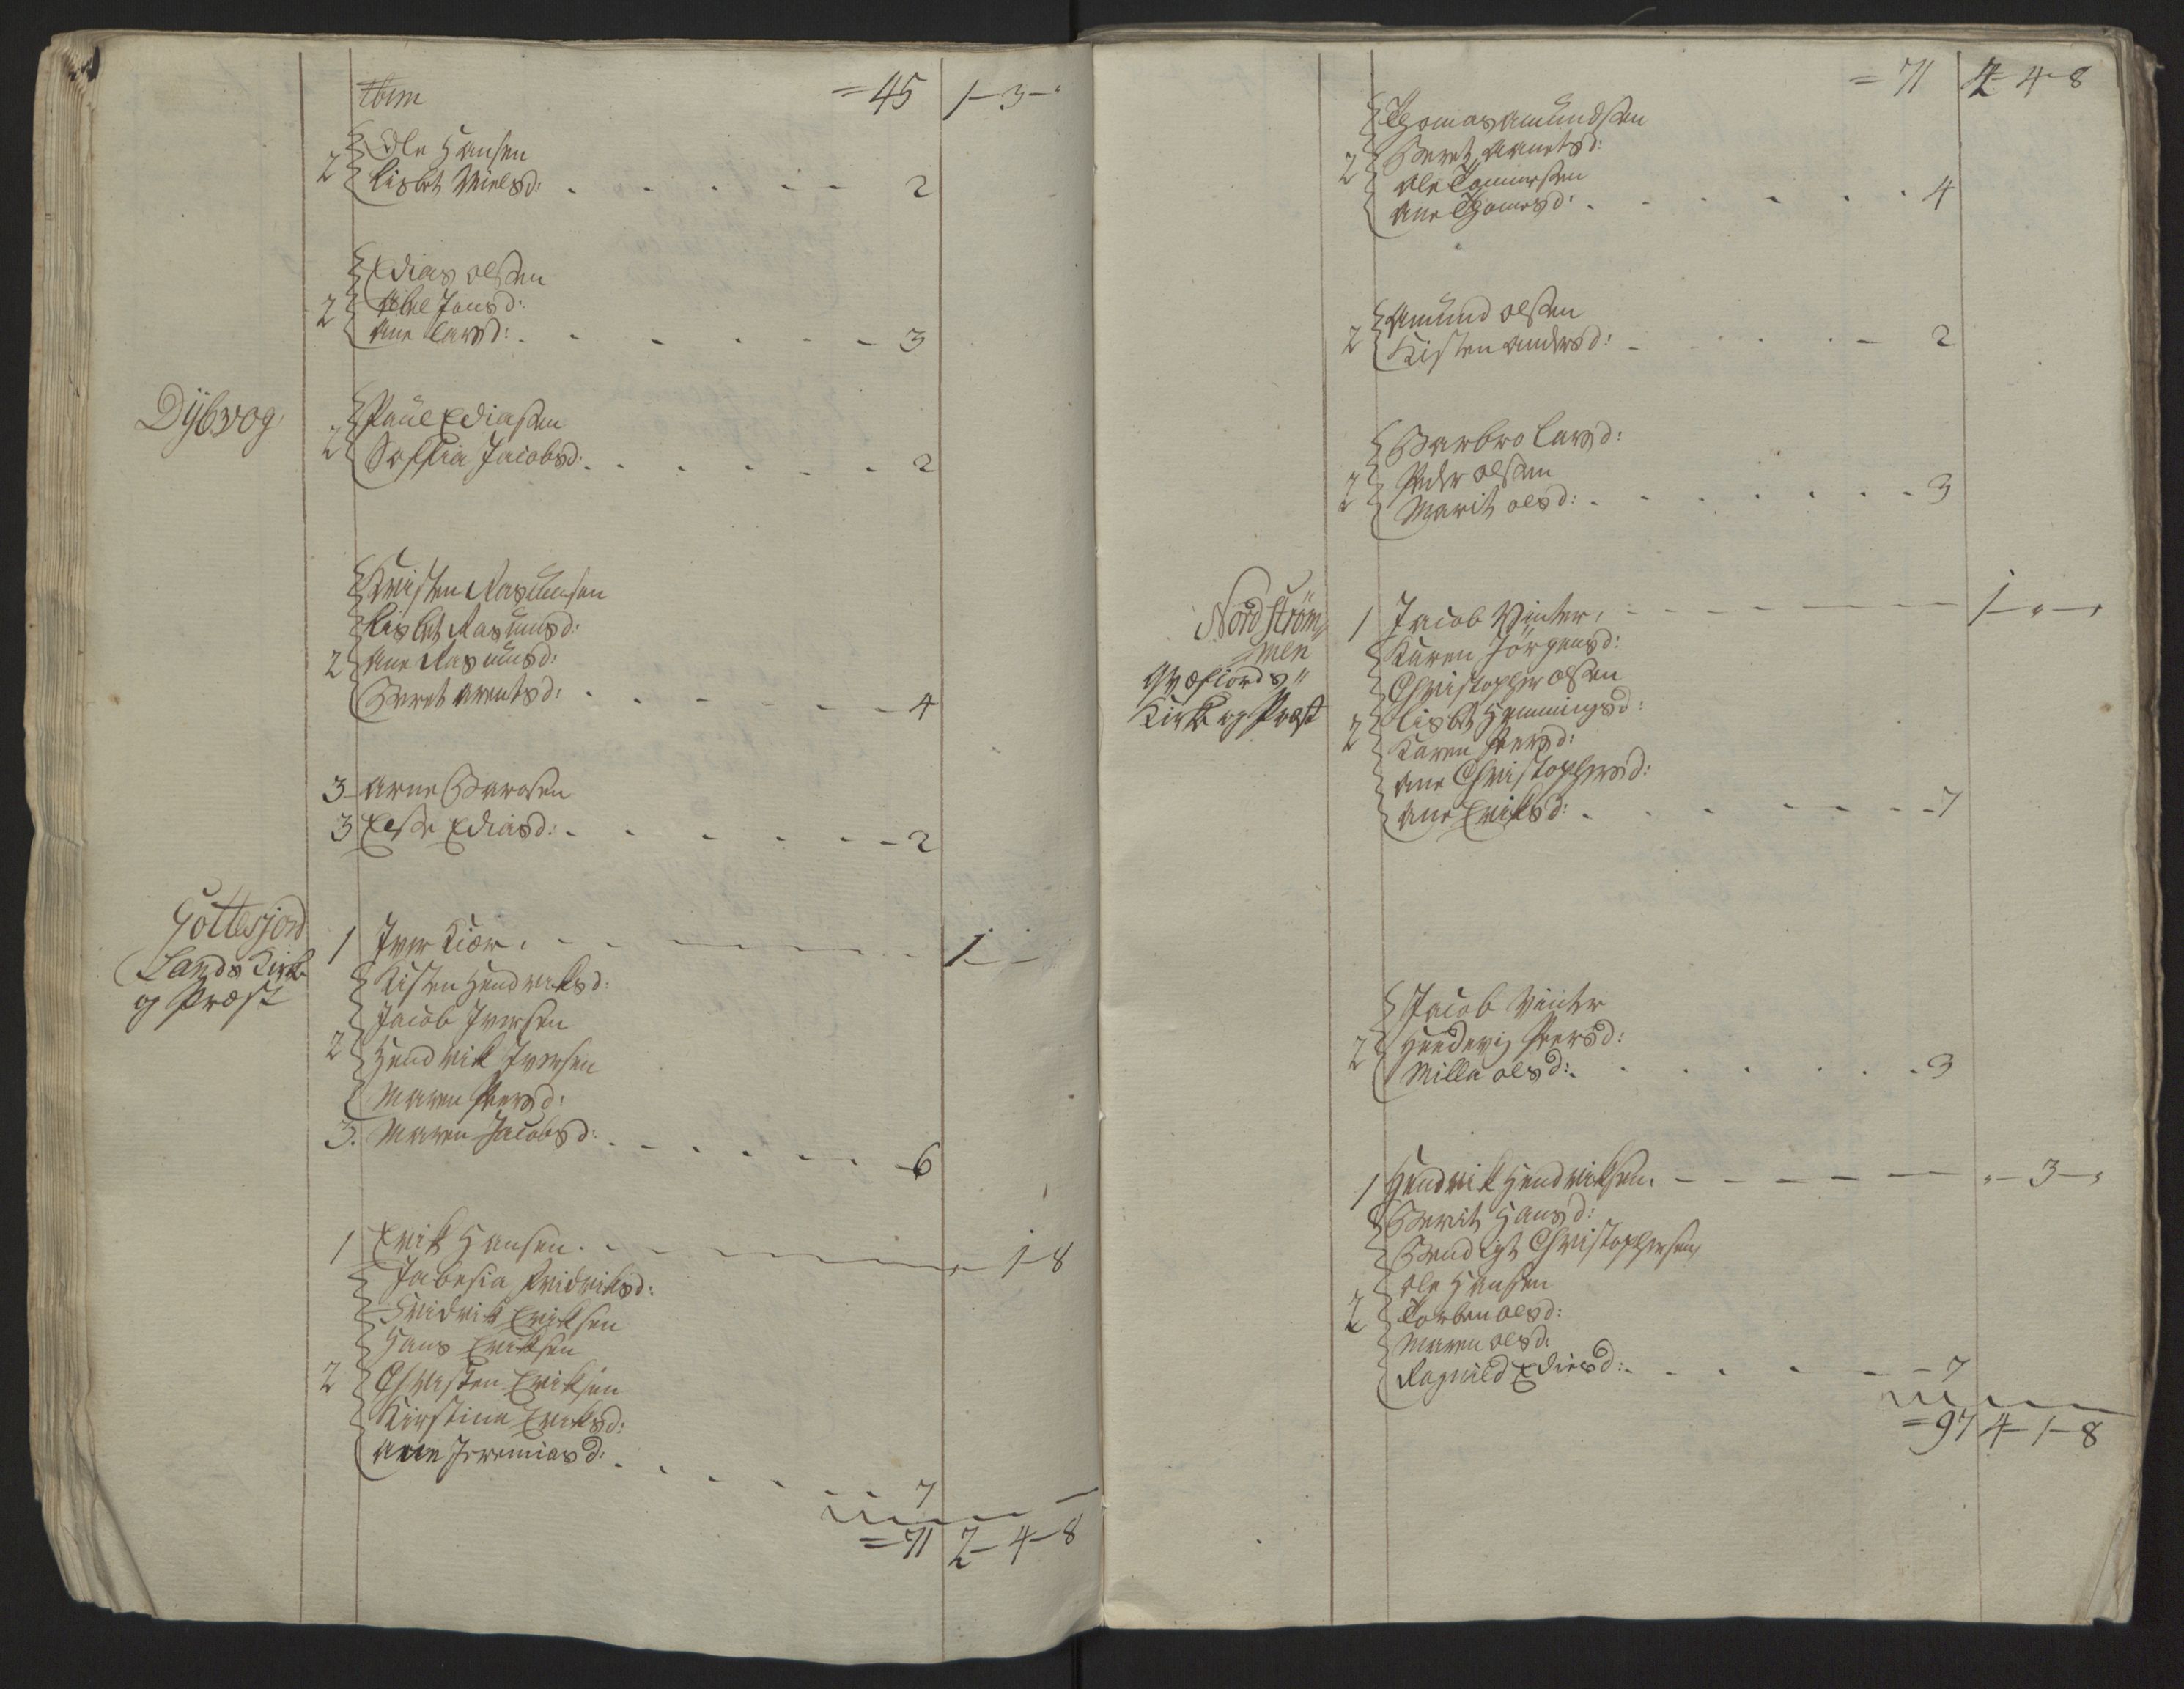 = 45 1-3-"
2 Ole Hansen
Lisbet Nielsd: 2
Edias Olsen
2 Abel Jensd:
Ane Larsd: 3
Dybvog
2 Paul Ediasen
Soffia Jacobsd: 2
Kristen Rasmusen
Lisbet Rasmusd:
2 Ane Rasmusd:
Beret Arentsd: 4
3 Arne Barosen
3 Else Ediasd: 2
Gottesjord
Sands Kirke
og Præst
1 Iver Kiær 1
Kisten Hendriksd:
Jacob Iversen
2 Hendrik Iversen
Maren Peersd:
3. Maren Jacobsd: 6
1 Erik Hansen 1-8
Fridriksd:
Fridrik Eriksen
Hans Eriksen
2 Christen Eriksen
Kirstine Eriksd:
Ane Jeremiasd: 7
= 71 2-4-8
= 71 2-4-8
Thomas Amundsen
2 Beret Arentsd:
Ole Tommesen
Ane Thomesd: 4
Amund Olsen
2 Kisten Andersd: 2
Barbro Larsd:
2 Peder Olsen
Marit Olsd: 3
Nordström
men
Qvæfiords
Kirke og Præst
1 Jacob Winter 1-"-"
Karen Jörgensd:
Christopher Olsen
2 Lisbet Hemmingsd:
Karen Peersd:
Ane Christophersd:
Ane Eriksd: 7
Jacob Vinter
2 Hendevig Peersd:
Milla Olsd: 3
1 Hendrik Hendriksen "-3-"
Berit Hansd:
Bendigt Christophersen
Ole Hansen
2 Torben Olsd:
Maren Olsd:
Ragnild Ediasd: 7
= 97 4-1-8